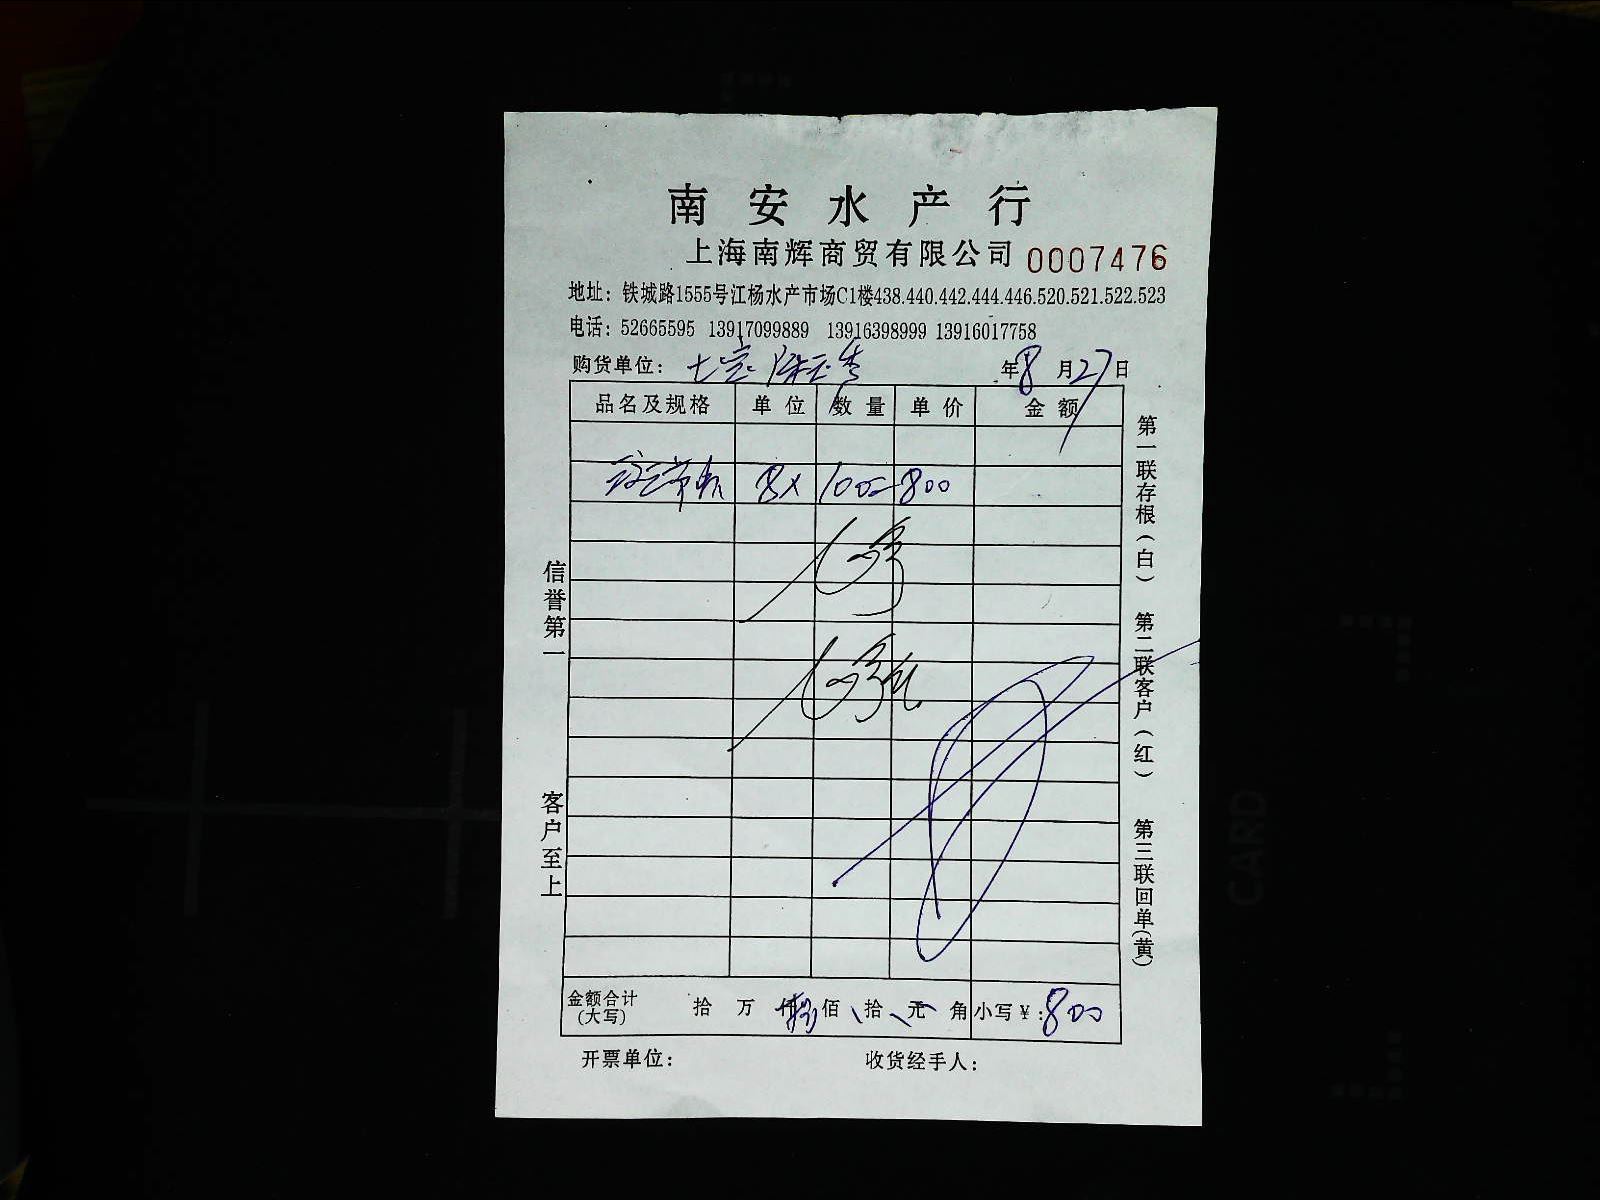 南安水产行
上海南辉商贸有限公司 0007476
地址：铁城路1555号江杨水产市场C1楼438.440.442.444.446.520.521.522.523
电话：52665595 13917099889 13916398999 13916017758
购货单位： 年8月27日
品名及规格 单位 数量 单价 金额
8× 100=800
金额合计(大写) 拾 万 仟捌佰 拾 元 角 小写¥：800
开票单位： 收货经手人：
信誉第一 客户至上
第一联存根（白） 第二联客户（红） 第三联回单(黄)
CARD